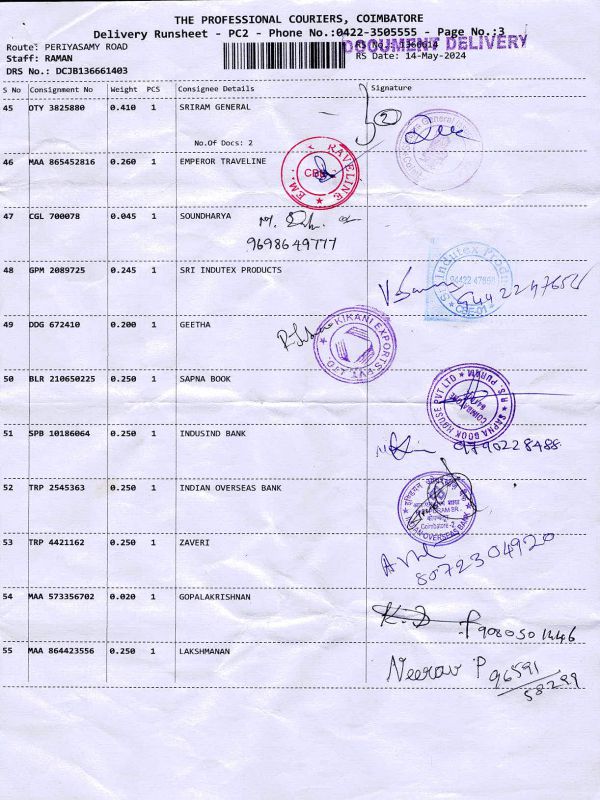 THE PROFESSIONAL COURIERS, COIMBATORE
Delivery Runsheet - PC2 - Phone No.:0422-3505555 - Page No.:3
Route: PERIYASAMY ROAD
DOCUMENT DELIVERY
Staff: RAMAN
RS Date: 14-May-2024
DRS No.: DCJB136661403
S No Consignment No Weight PCS Consignee Details Signature
45 OTY 3825880 0.410 1 SRIRAM GENERAL
2
No.Of Docs: 2
46 MAA 865452816 0.260 1 EMPEROR TRAVELINE
47 CGL 700078 0.045 1 SOUNDHARYA
9698649777
48 GPM 2089725 0.245 1 SRI INDUTEX PRODUCTS
Indutex
CBE-01
49 DDG 672410 0.200 1 GEETHA
KIKANI EXPORTS PVT. LTD
50 BLR 210650225 0.250 1 SAPNA BOOK
SAPNA BOOK HOUSE PVT LTD
R.S. PURAM
51 SPB 10186064 0.250 1 INDUSIND BANK
9790228488
52 TRP 2545363 0.250 1 INDIAN OVERSEAS BANK
Coimbatore-2
OVERSEAS BANK
53 TRP 4421162 0.250 1 ZAVERI
8072304920
54 MAA 573356702 0.020 1 GOPALAKRISHNAN
9080501446
55 MAA 864423556 0.250 1 LAKSHMANAN
Neerav P 96591
58299